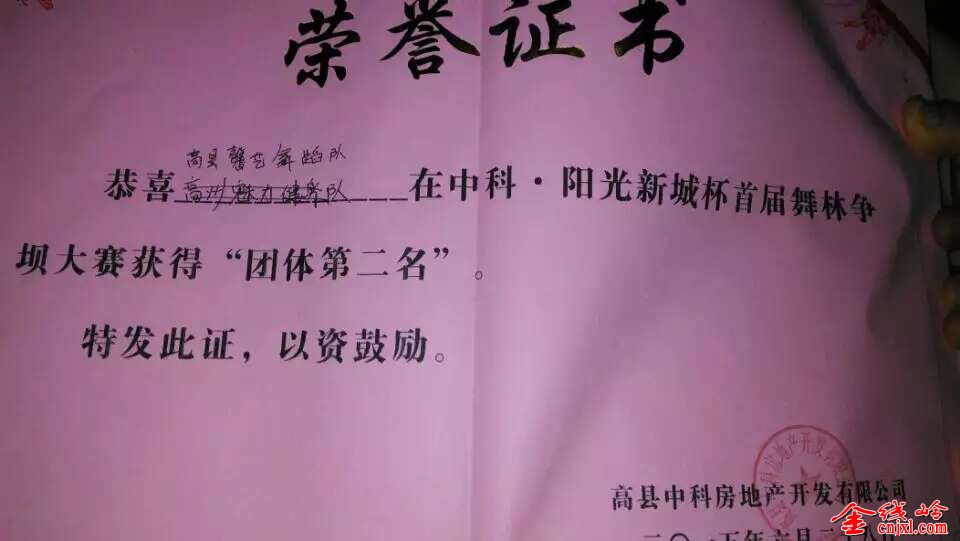 荣誉证书
高县馨艺舞蹈队
恭喜高州魅力健身队在中科·阳光新城杯首届舞林争
坝大赛获得“团体第二名”。
特发此证，以资鼓励。
房地产开发有限
高县中科房地产开发有限公司
二〇一五年六月二十八日
金线岭
cnjxl.com